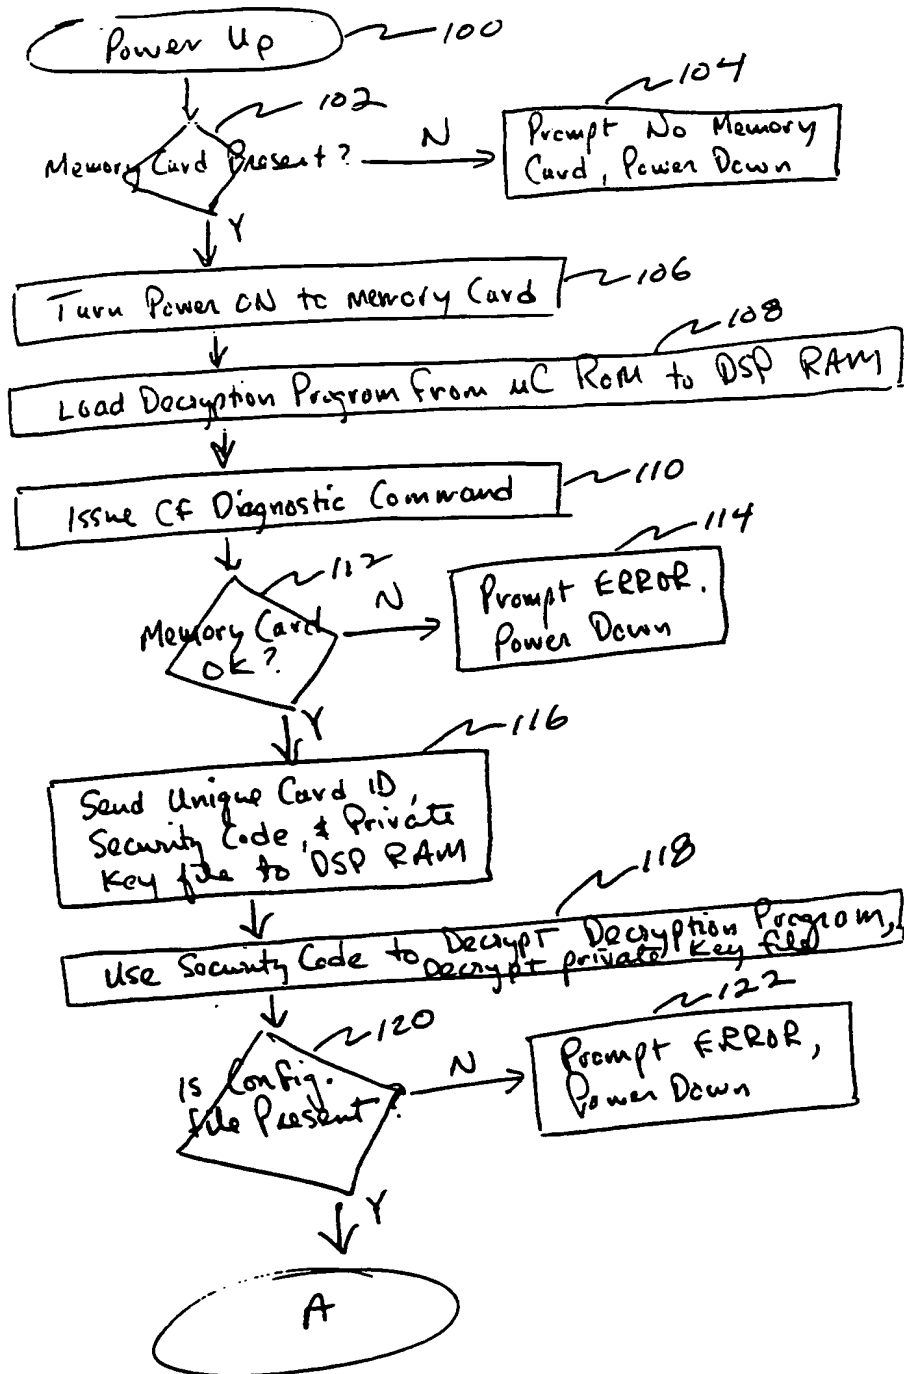 Power Up
100
102
104
Memory Card Present?
N
Prompt No Memory
Card, Power Down
Y
Turn Power ON to Memory Card
106
108
Load Decryption Program from uC ROM to DSP RAM
Issue CF Diagnostic Command
110
112
114
Memory Card
OK?
N
Prompt ERROR.
Power Down
Y
116
Send Unique Card ID,
Security Code, & Private
Key file to DSP RAM
118
Use Security Code to Decrypt Decryption Program,
Decrypt private key file
120
122
Is Config.
file Present?
N
Prompt ERROR,
Power Down
Y
A